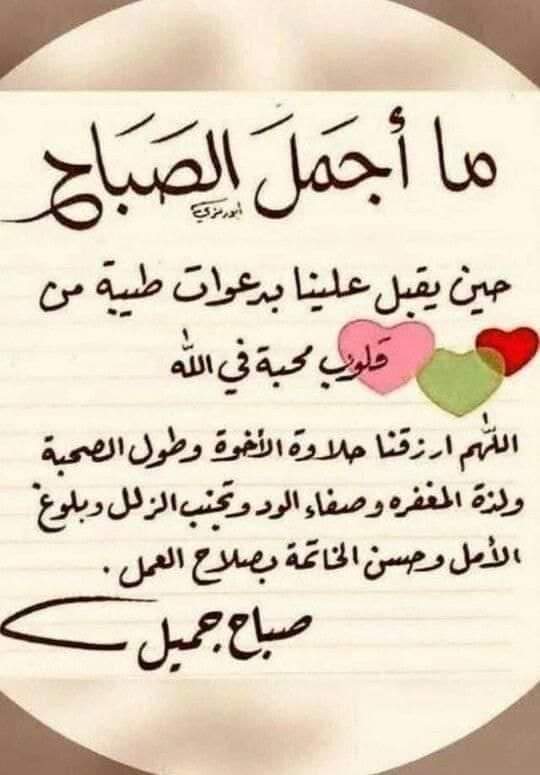 ما أجمَلَ الصَبَاح
ابورمزي
حين يقبل علينا بدعوات طيبة من
قلوب محبة في الله
اللهم ارزقنا حلاوة الأخوة وطول الصحبة
ولذة المغفره وصفاء الود وتجنب الزلل وبلوغ
الأمل وحسن الخاتمة بصلاح العمل .
صباح جميل